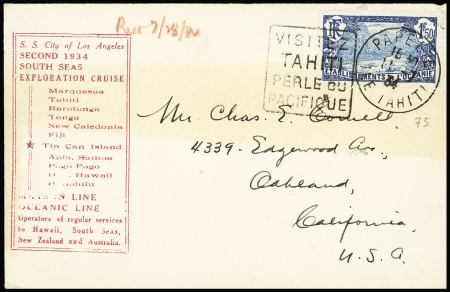 Rec 7/28/34
S. S. City of Los Angeles
SECOND 1934
SOUTH SEAS
EXPLORATION CRUISE
Marquesas
Tahiti
Rarotonga
Tonga
New Caledonia
Fiji
Tin Can Island
Apia, Samoa
Pago Pago
Hawaii
LINE
OCEANIC LINE
Operators of regular services
to Hawaii, South Seas,
New Zealand and Australia.
VISITEZ
TAHITI
PERLE DU
PACIFIQUE
1F50
PAPEETE TAHITI
75
Mr. Chas. E.
4339- Edgewood Ave.,
Oakland,
California,
U.S.A.